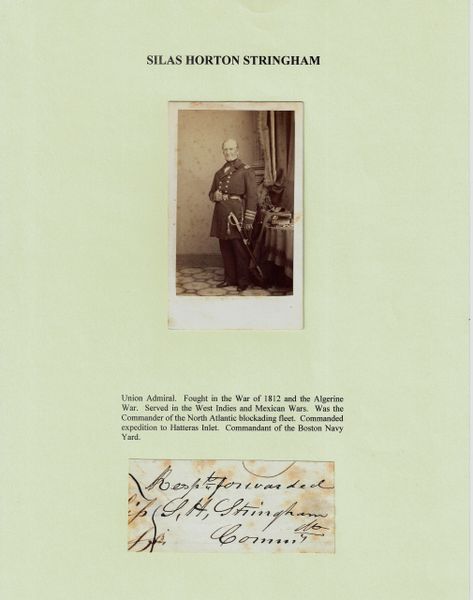 SILAS HORTON STRINGHAM
Union Admiral. Fought in the War of 1812 and the Algerine
War. Served in the West Indies and Mexican Wars. Was the
Commander of the North Atlantic blockading fleet. Commanded
expedition to Hatteras Inlet. Commandant of the Boston Navy
Yard.
Respty forwarded
S. H. Stringham
Commdt